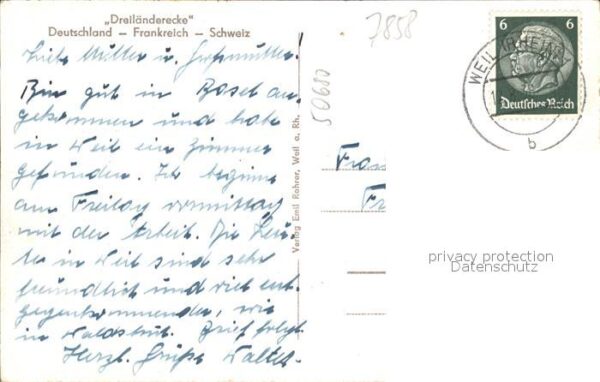 „Dreiländerecke"
Deutschland – Frankreich – Schweiz
7858
50680
Liebe Mutter u. Großmutter.
Bin gut in Basel an-
gekommen und habe
in Weil ein Zimmer
gefunden. Ich beginne
am Freitag vormittag
mit der Arbeit. Die Leu-
te in Weil sind sehr
freundlich und viel ent-
gegenkommender, wie
in Waldshut. Brief folgt.
Herzl. Grüße Walter.
Verlag Emil Rohrer, Weil a. Rh.
6 6
Deutsches Reich
WEIL (RHEIN)
b
Fra
Fr
privacy protection
Datenschutz